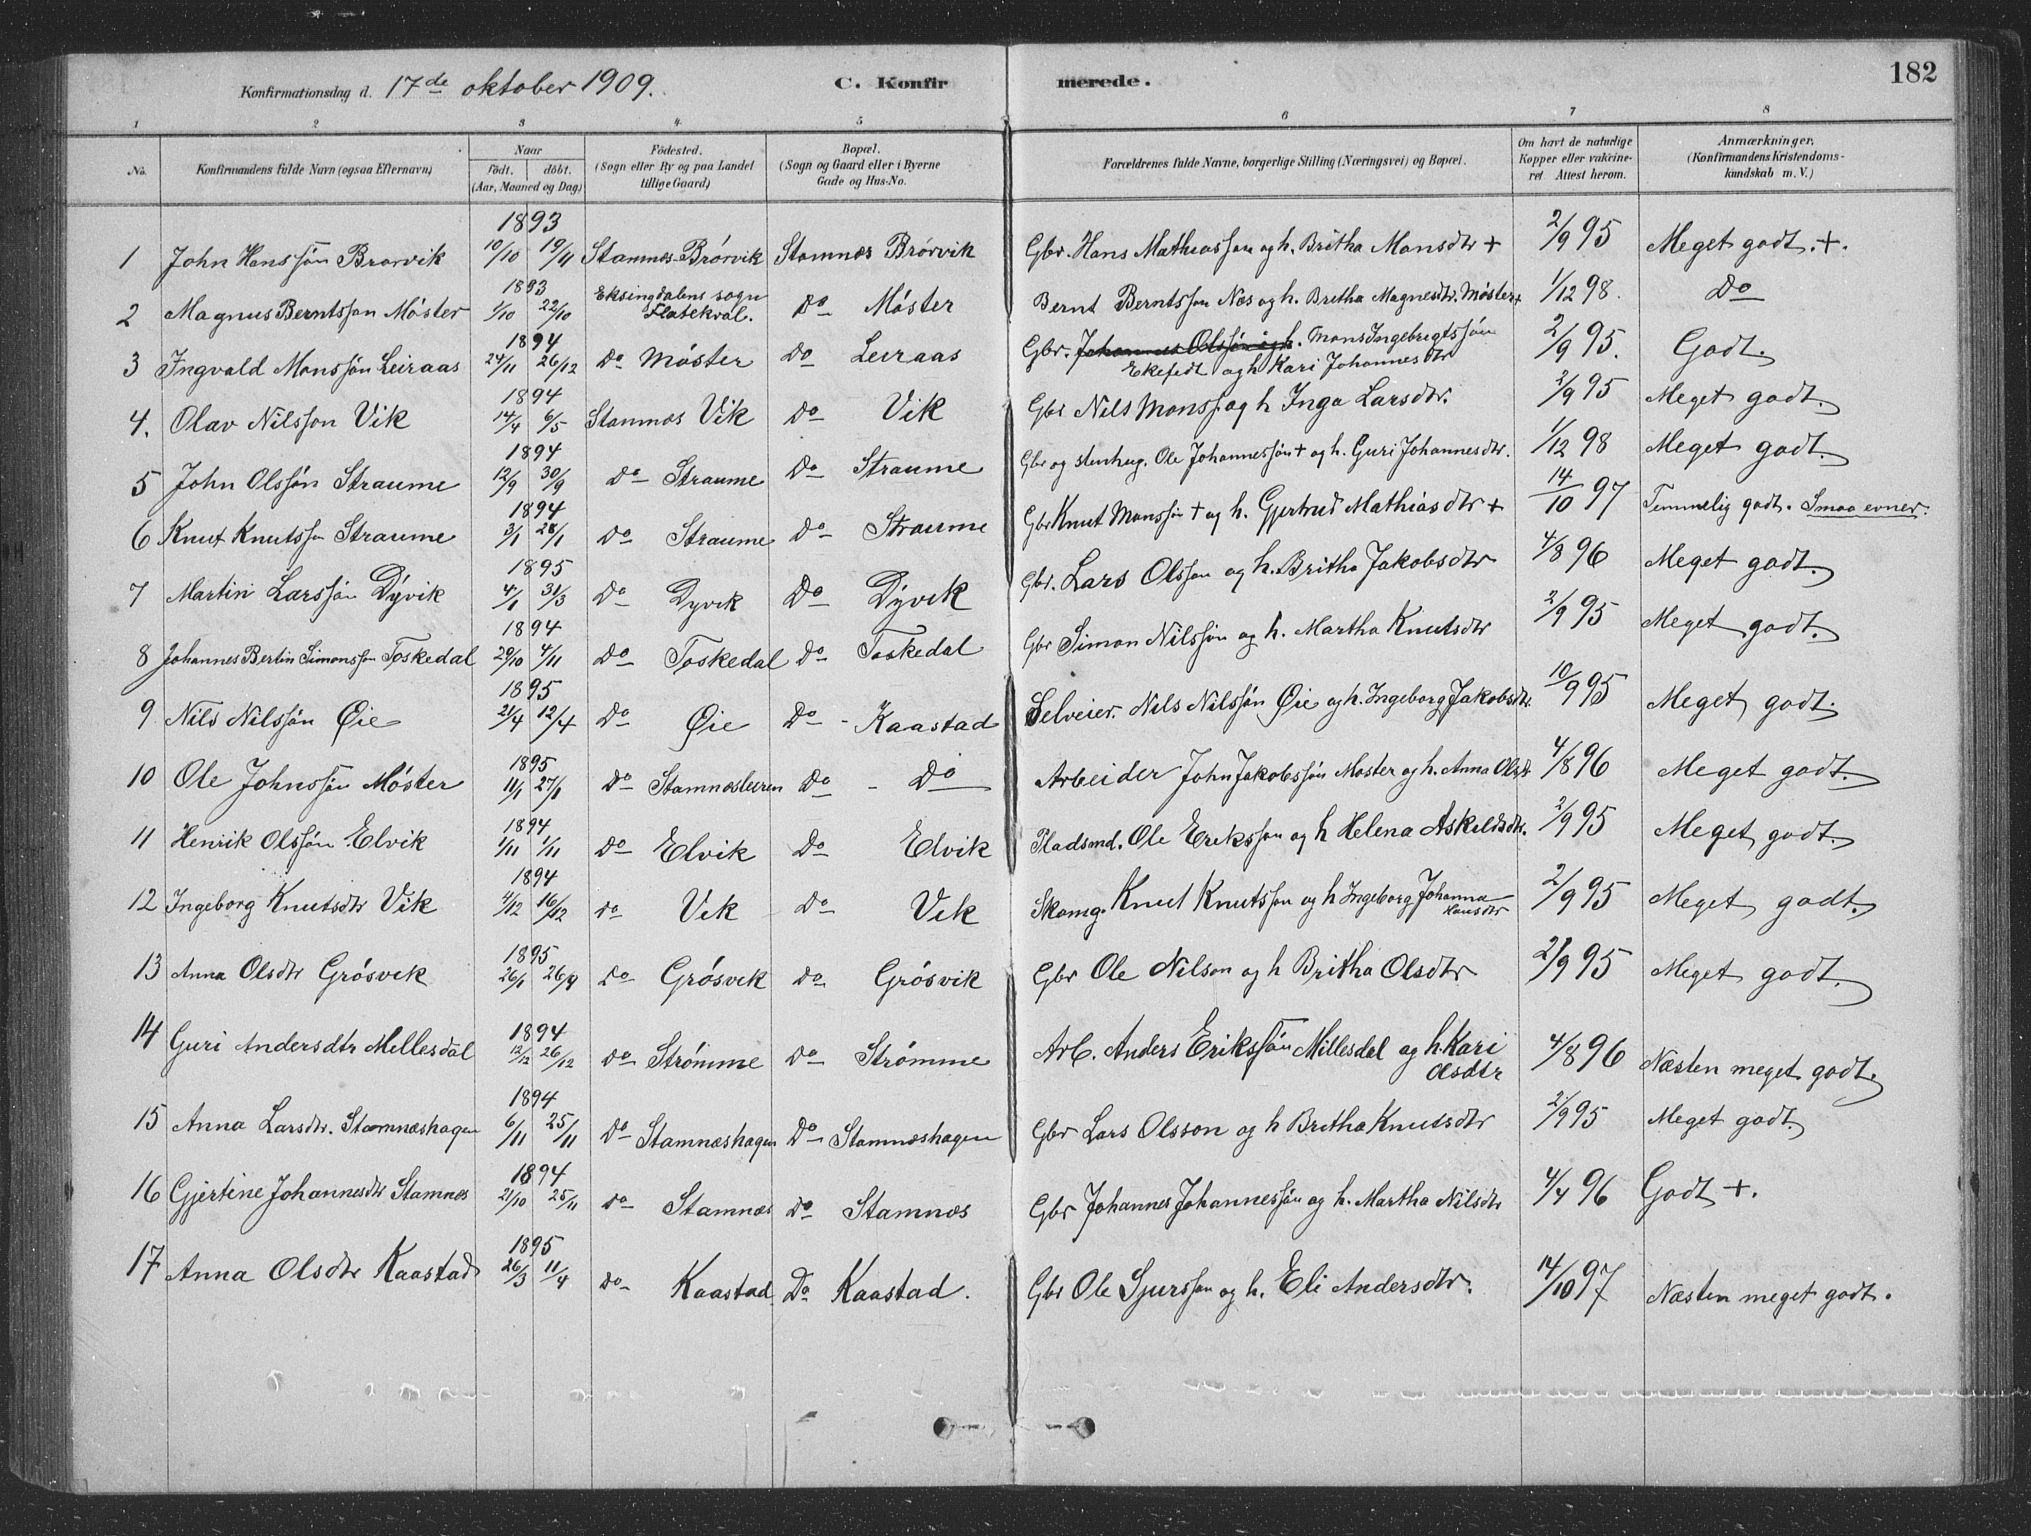 182
Konfirmationsdag d. 17de oktober 1909. C. Konfirmerede.
1 2 3 4 5 6 7 8
No. Konfirmandens fulde Navn (ogsaa Efternavn) Naar födt. döbt. (Aar, Maaned og Dag) Födested. (Sogn eller By og paa Landet tillige Gaard) Bopæl. (Sogn og Gaard eller i Byerne Gade og Hus-No. Forældrenes fulde Navne, borgerlige Stilling (Næringsvei) og Bopæl. Om havt de naturlige Kopper eller vakcineret Attest herom. Anmærkninger. (Konfirmandens Kristendomskundskab m. V.)
1893
1 John Hanssön Brørvik 10/10 19/11 Stamnes-Brørvik Stamnæs Brørvik Gbr. Hans Mathiasson og h. Britha Monsdtr + 2/9 95 Meget godt. +.
1893
2 Magnus Berntsson Møster 1/10 22/10 Eksingdalens sogn Flatekval. Do Møster Bernt Berntsson Næs og h. Bretha Magnesdtr. Møster + 1/12 98. Do
1894
3 Ingvald Monssøn Leiraas 24/11 26/12 Do Møster Do Leiraas Gbr. Johannes Olssøn og h. Mons Ingebrigtssøn Ekefedt og h Kari Johannesdtr 2/9 95. Godt.
1894
4. Olav Nilsson Vik 14/4 6/5 Stamnæs Vik Do Vik Gbr Nils Monss. og h Inga Larsdtr. 2/9 95 Meget godt.
1894
5 John Olssøn Straume 12/9 30/9 Do Straume Do Straume Gbr og stenhug. Ole Johannessøn + og h. Guri Johannesdtr. 1/12 98 Meget godt.
1894
6 Knut Knutsson Straume 3/1 28/1 Do Straume Do Straume Gbr Knut Monssøn + og h. Gjertrud Mathiasdtr + 14/10 97 Temmelig godt. Smaa evner.
1895
7 Martin Larssøn Dyvik 4/1 31/3 Do Dyvik Do Dyvik Gbr. Lars Olsson og h. Britha Jakobsdtr 4/8 96 Meget godt.
1894
8 Johannes Bertin Simonsson Toskedal 29/10 4/11 Do Toskedal Do Toskedal Gbr Simon Nilssøn og h. Martha Knutsdtr 2/9 95 Meget godt.
1895
9 Nils Nilssøn Øie 21/4 12/4 Do Øie Do - Kaastad Selveier. Nils Nilssøn Øie og h. Ingeborg Jakobsdtr. 10/9 95 Meget godt.
1895
10 Ole Johnssøn Møster 11/1 27/1 Do Stamnæsleiren Do - Do Arbeider John Jakobssøn Møster og h. Anna Olsdt 4/8 96 Meget godt.
1894
11 Henrik Olssøn Elvik 1/11 1/11 Do Elvik Do Elvik Pladsmd. Ole Eriksson og h Helena Askildsdtr. 2/9 95 Meget godt.
1894
12 Ingeborg Knutsdtr Vik 4/12 16/12 do Vik Do Vik Skomg. Knut Knutsson og h Ingeborg Johanna Hansdtr 2/9 95 Meget godt.
1895
13 Anna Olsdtr Grøsvik 26/1 26/4 Do Grøsvik Do Grøsvik Gbr Ole Nilson og h Britha Olsdtr 2/9 95 Meget godt.
1894
14 Guri Andersdtr Mellesdal 12/12 26/12 Do Strømme Do Strømme Arb. Anders Erikssøn Millesdal og h. Kari Olsdtr 4/8 96 Næsten meget godt.
1894
15 Anna Larsdtr. Stamnæshagen 6/11 25/11 Do Stamnæshagen Do Stamnæshagen Gbr Lars Olsson og h Britha Knutsdtr 2/9 95 Meget godt.
1894
16 Gjertine Johannesdtr Stamnes 21/10 25/11 Do Stamnæs Do Stamnæs Gbr Johannes Johannessøn og h. Martha Nilsdtr 4/4 96 Godt +.
1895
17 Anna Olsdtr Kaastad 26/3 11/4 Do Kaastad Do Kaastad. Gbr Ole Sjursson og h. Eli Andersdtr. 14/10 97 Næsten meget godt.